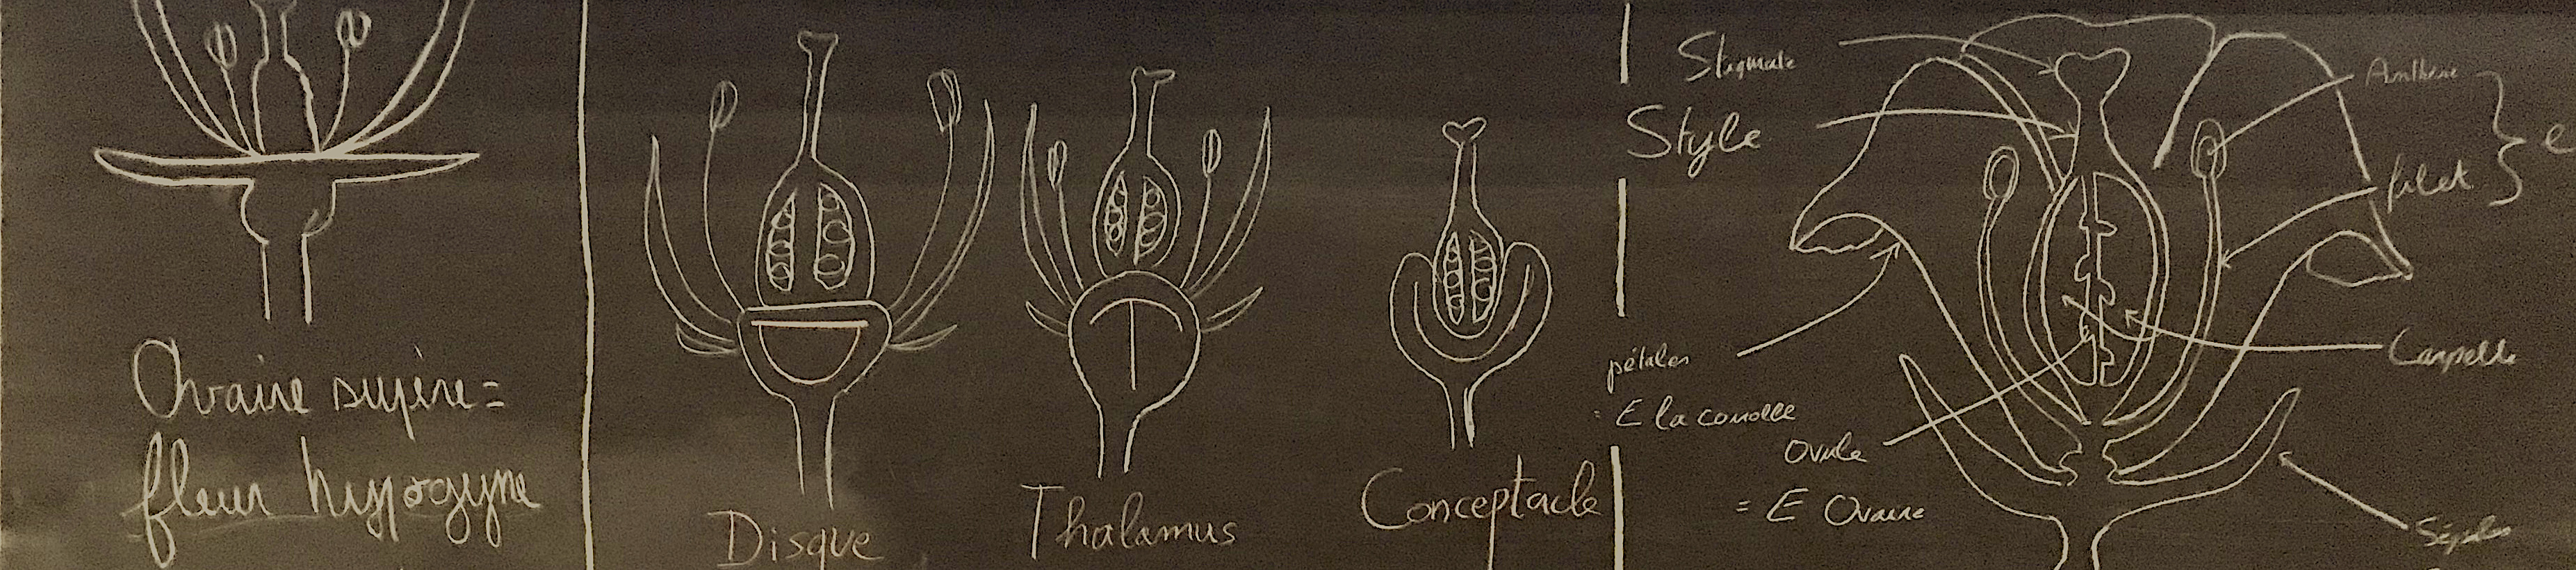 Ovaire supère =
fleur hypogyne
Disque
Thalamus
Conceptacle
Stigmate
Style
pétales
= E la corolle
Ovule
= E Ovaire
Anthère
filet
Carpelle
Sépales